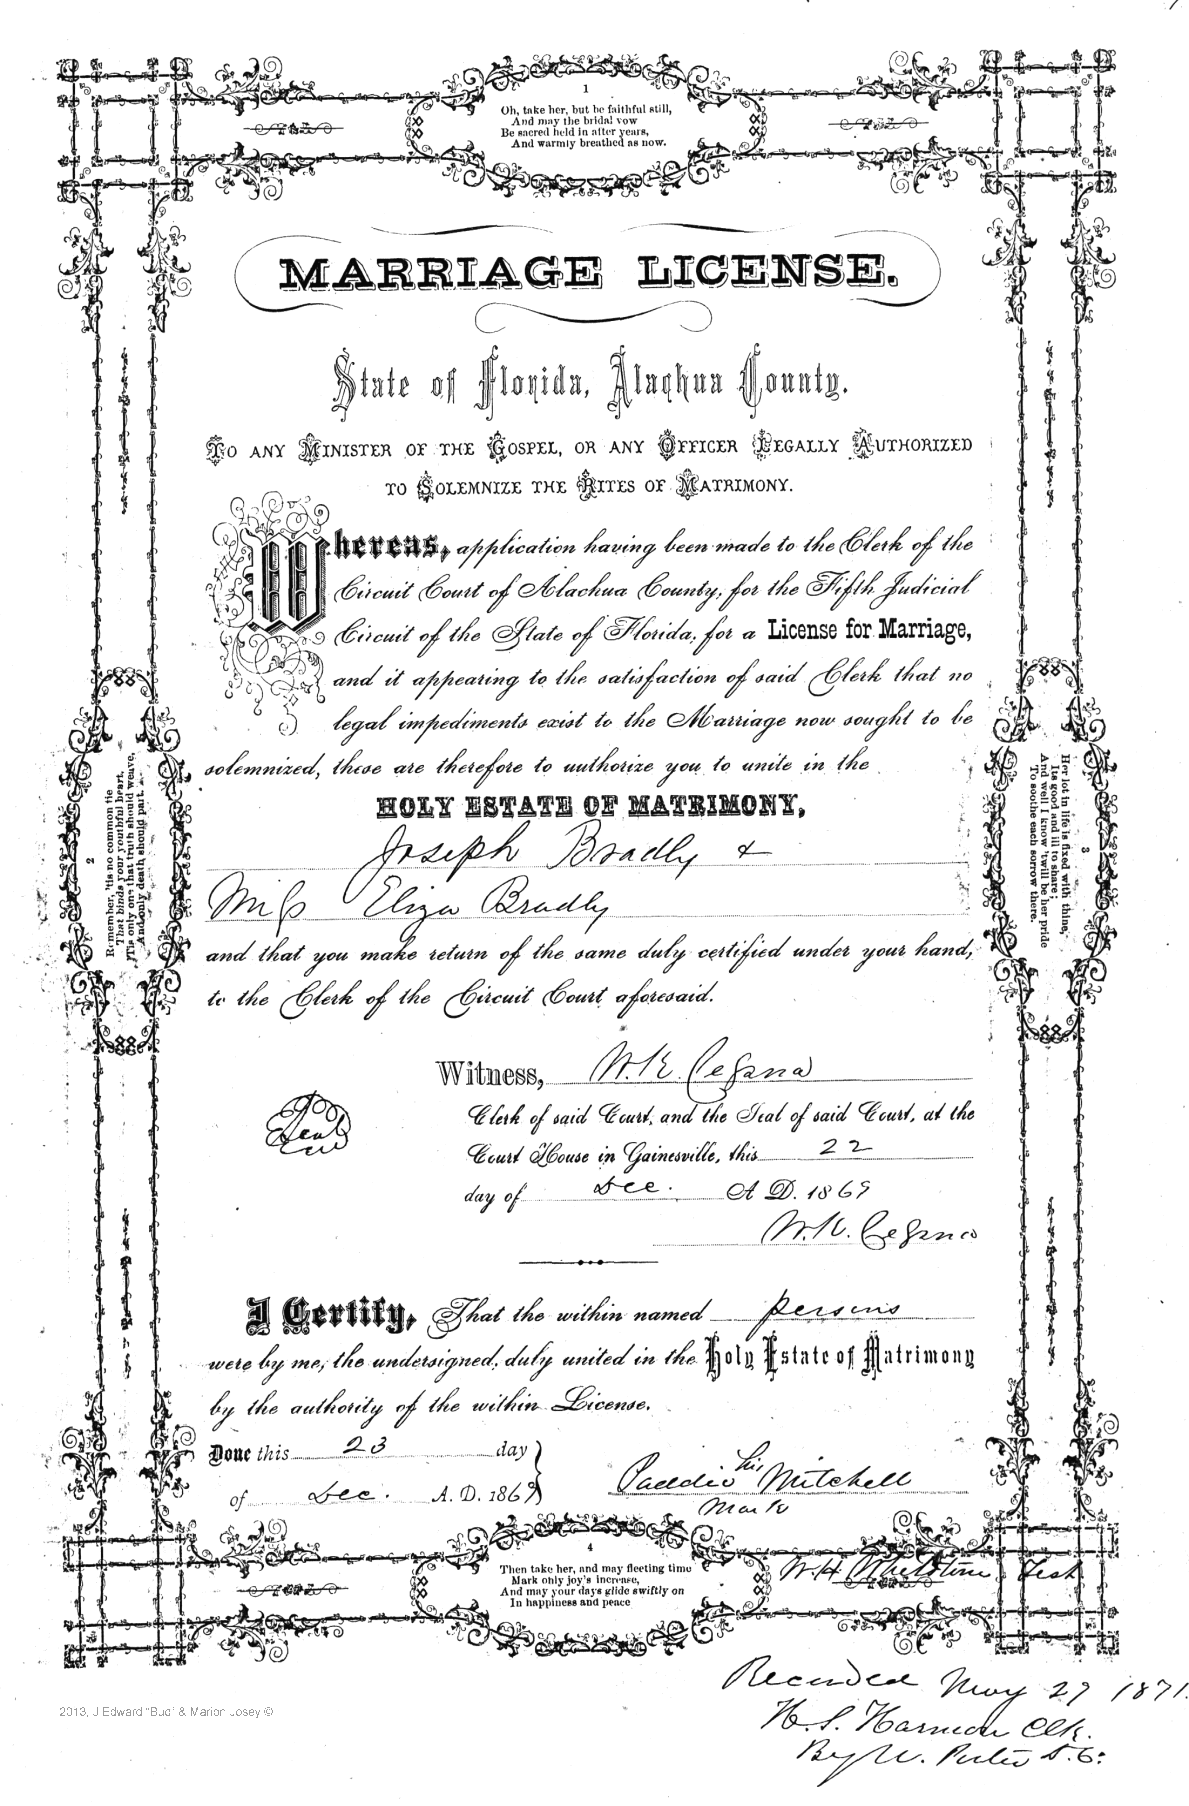 1
Oh, take her, but be faithful still,
And may the bridal vow
Be sacred held in after years,
And warmly breathed as now.
MARRIAGE LICENSE.
State of Florida, Alachua County.
TO ANY MINISTER OF THE GOSPEL, OR ANY OFFICER LEGALLY AUTHORIZED
TO SOLEMNIZE THE RITES OF MATRIMONY.
Whereas, application having been made to the Clerk of the
Circuit Court of Alachua County, for the Fifth Judicial
Circuit of the State of Florida, for a License for Marriage,
and it appearing to the satisfaction of said Clerk that no
legal impediments exist to the Marriage now sought to be
solemnized, these are therefore to authorize you to unite in the
HOLY ESTATE OF MATRIMONY,
Joseph Bradly &
Miss Eliza Bradly
and that you make return of the same duly certified under your hand,
to the Clerk of the Circuit Court aforesaid.
2
Remember, 'tis no common tie
That binds your youthful heart,
'Tis only one that truth should weave,
And only death should part.
3
Her lot in life is fixed with thine,
Its good and ill to share;
And well I know 'twill be her pride
To soothe each sorrow there.
Witness, W. K. Cessna
Clerk of said Court, and the Seal of said Court, at the
Court House in Gainesville, this 22
day of Dec. A D. 1869
Seal
W. K. Cessna
I Certify, That the within named persons
were by me, the undersigned, duly united in the Holy Estate of Matrimony
by the authority of the within License.
Done this 23 day
of Dec. A. D. 1869
his
Paddie Mitchell
Mark
4
Then take her, and may fleeting time
Mark only joy's increase,
And may your days glide swiftly on
In happiness and peace
W. H. Test
Recorded May 27 1871.
H. S. Harmon Clk.
By W. Porter D. C.
2013, J Edward "Bud" & Marion Josey ©